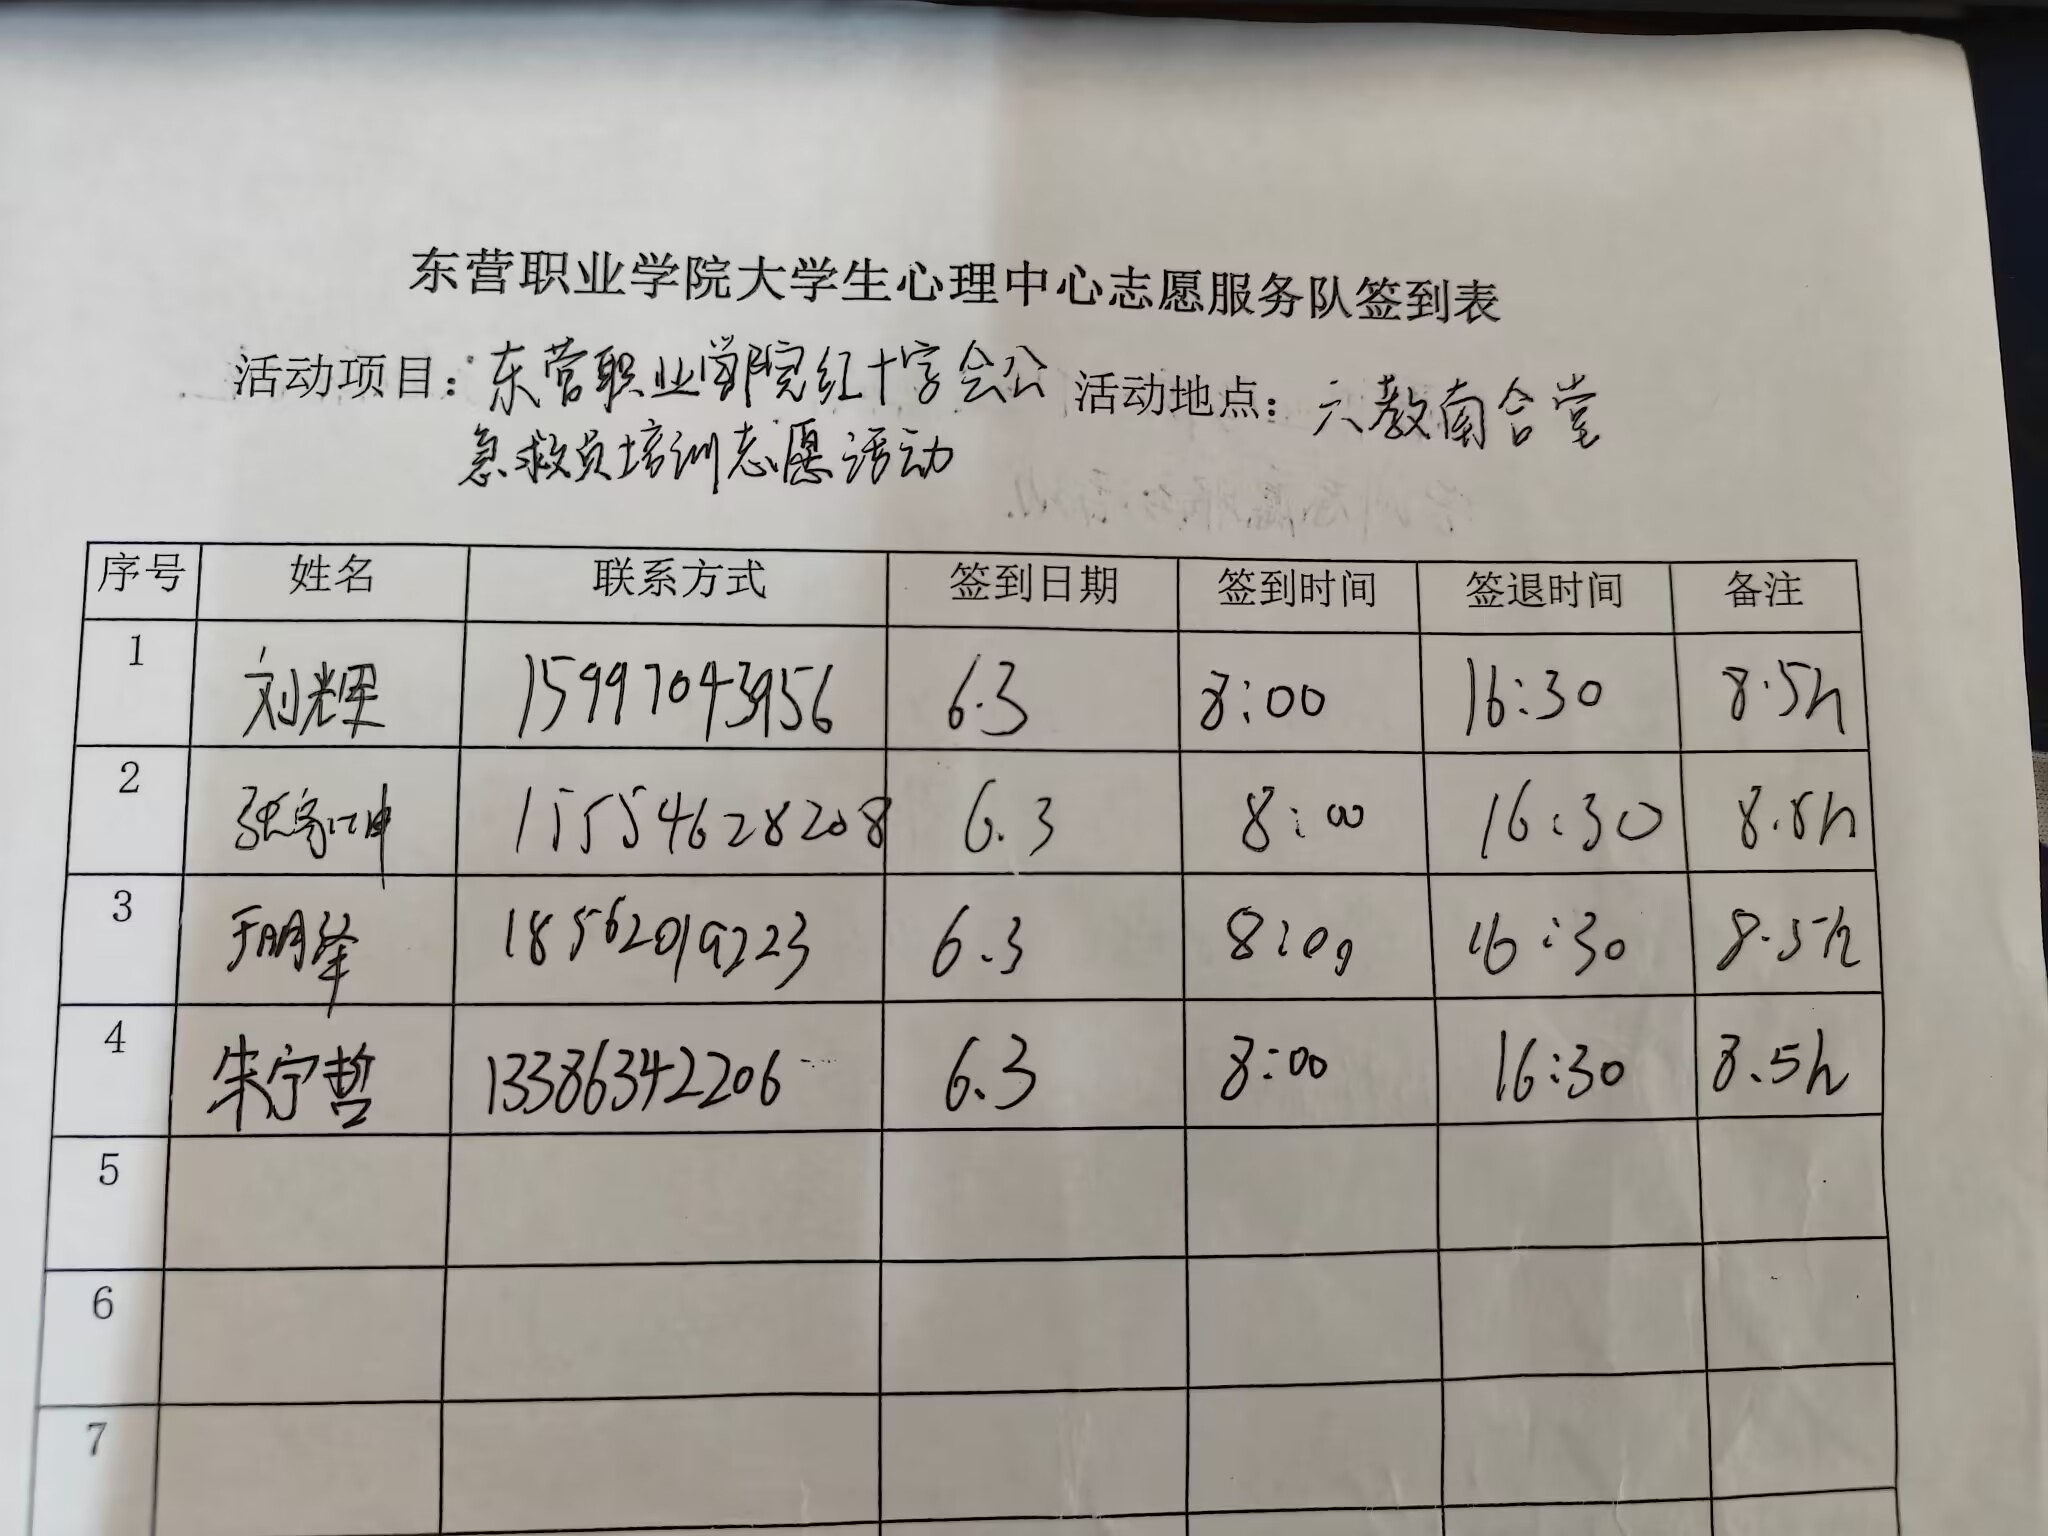 东营职业学院大学生心理中心志愿服务队签到表
活动项目：东营职业学院红十字会公 活动地点：六教南合堂
急救员培训志愿活动
序号 姓名 联系方式 签到日期 签到时间 签退时间 备注
1 刘光果 15997043956 6.3 8:00 16:30 8.5h
2 15554628208 6.3 8:00 16:30 8.5h
3 18562019223 6.3 8:00 16:30 8.5h
4 朱宁哲 13386342206 6.3 8:00 16:30 8.5h
5
6
7